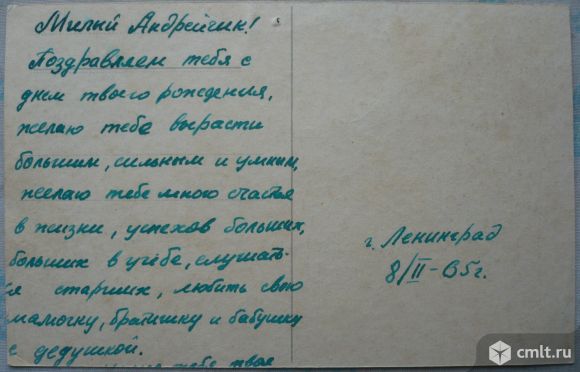 Милый Андрейчик!
Поздравляем тебя с
днем твоего рождения,
желаю тебе вырасти
большим, сильным и умным,
желаю тебе много счастья
в жизни, успехов больших,
больших в учёбе, слушать-
ся старших, любить свою
мамочку, братишку и бабушку
с дедушкой.
тебе твоя
г. Ленинград
8/II-65г.
cmlt.ru